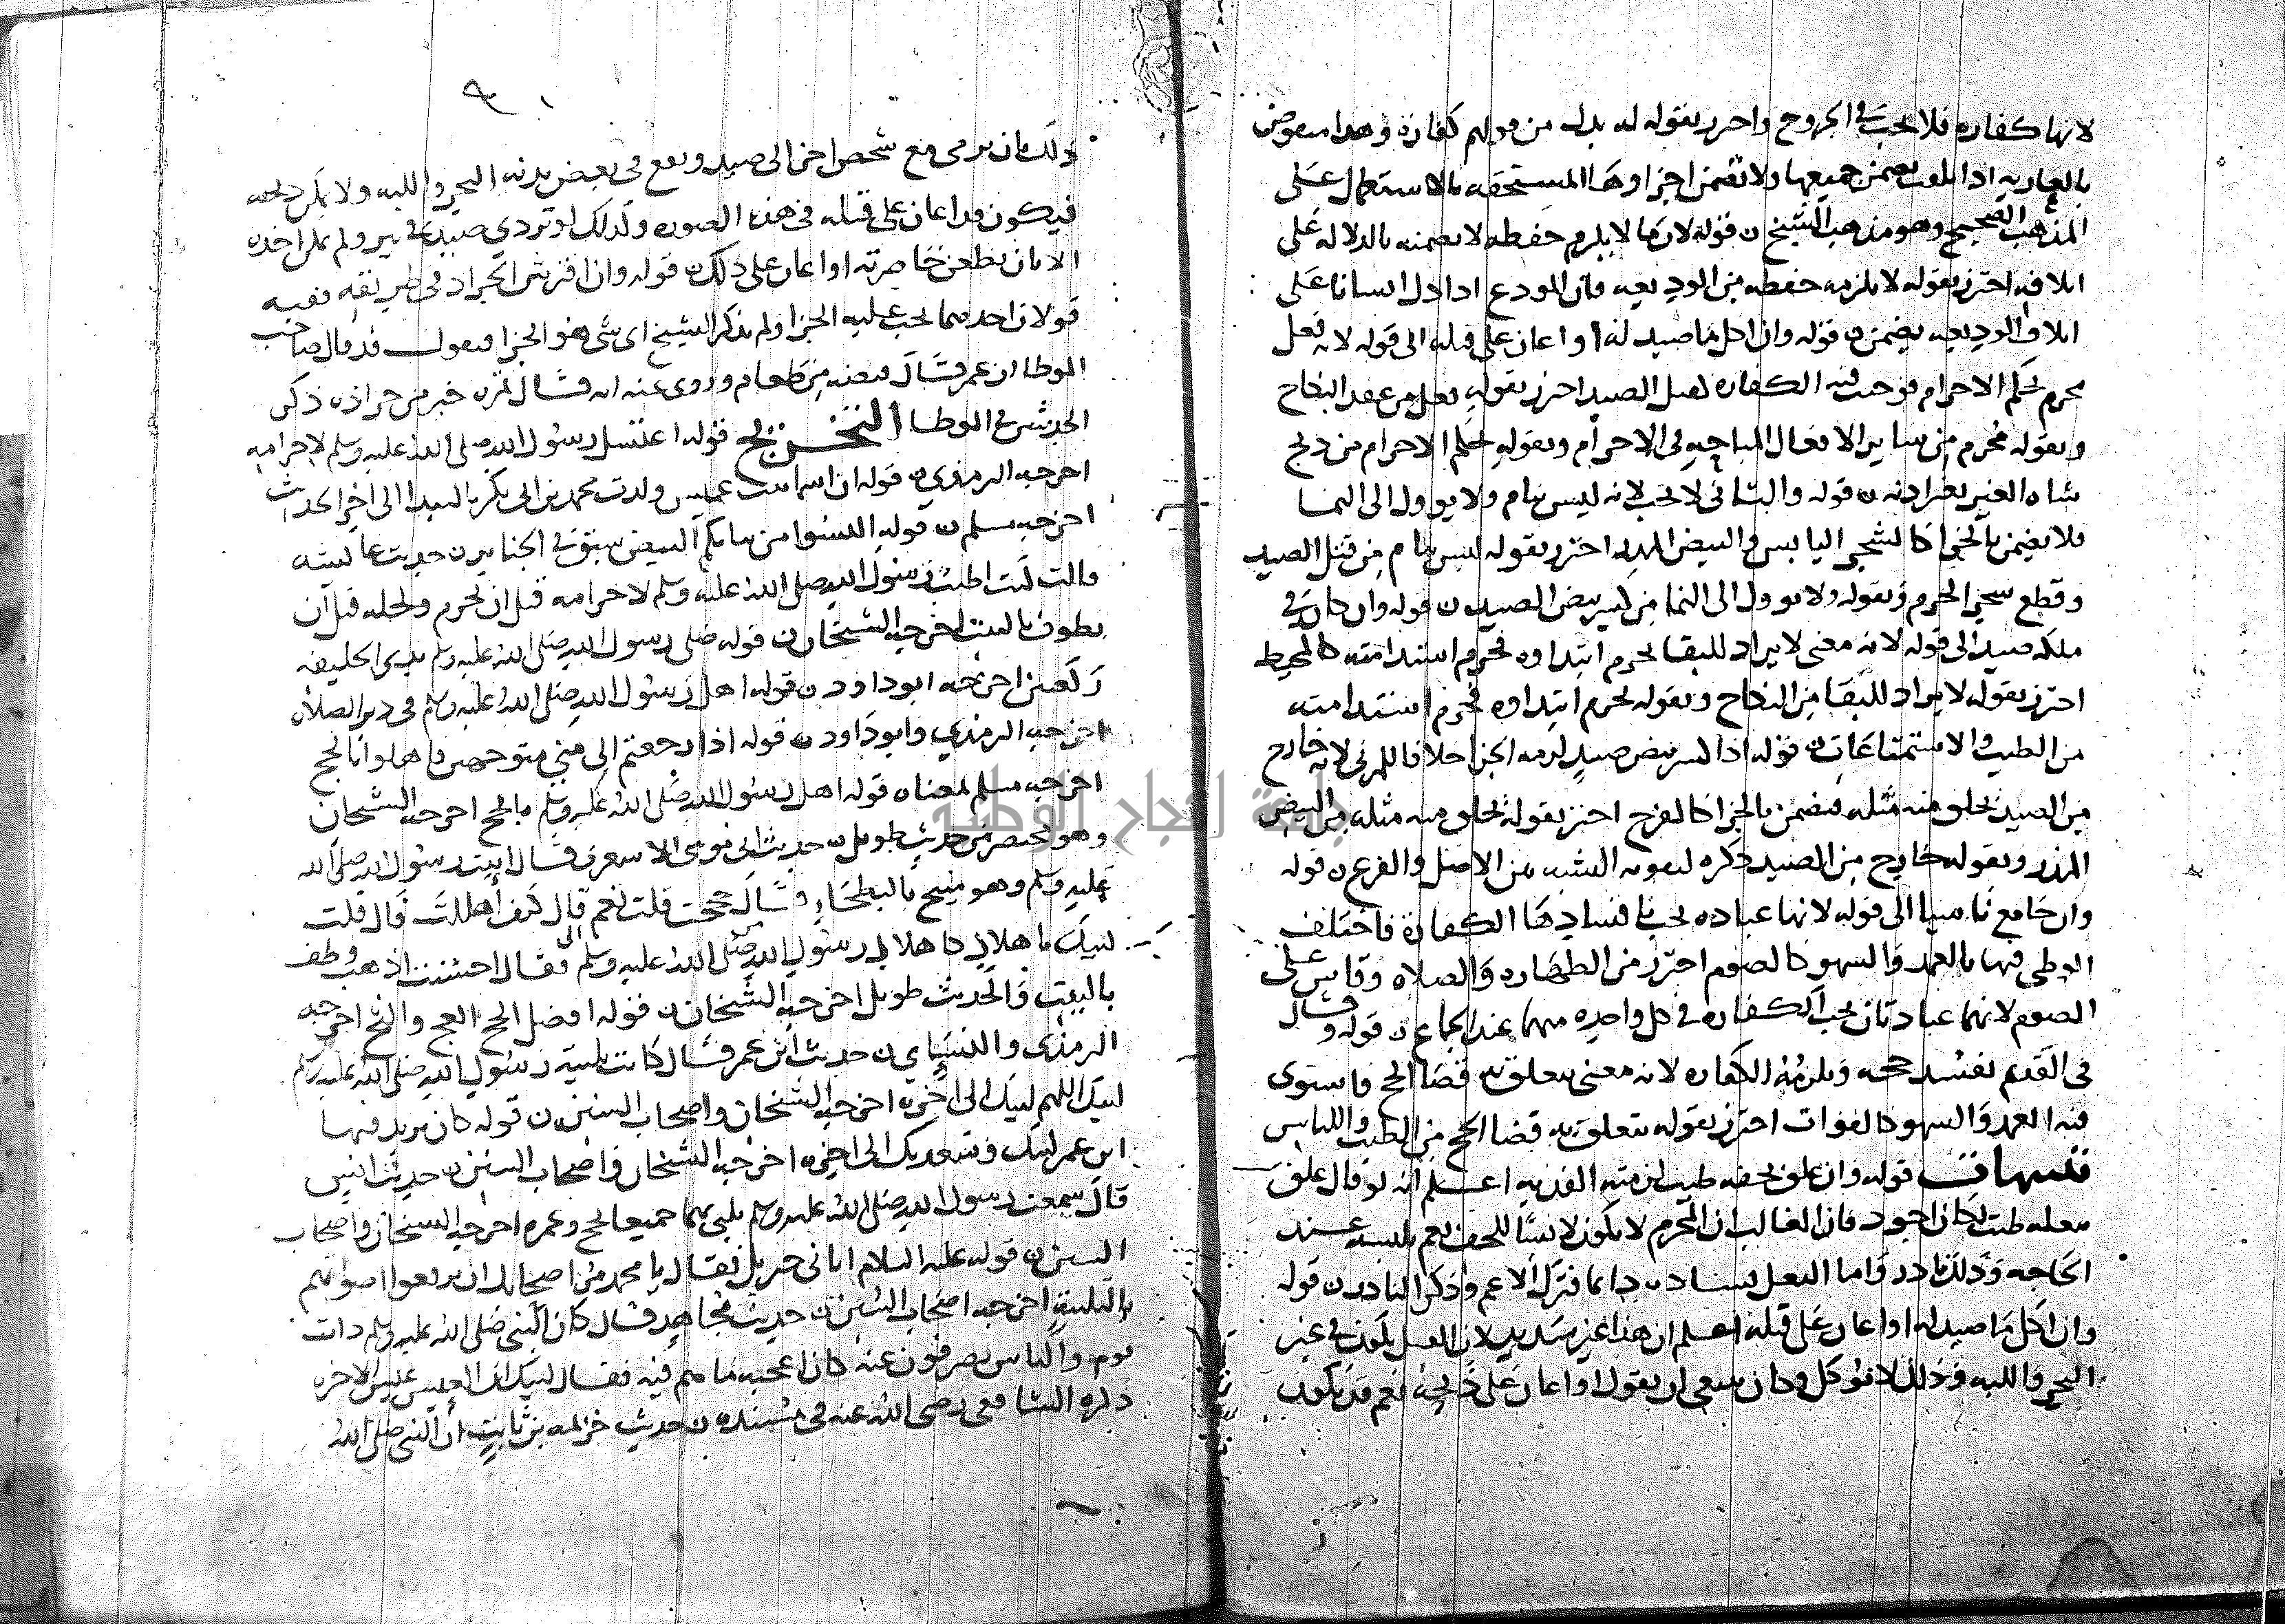 لانها كفاره فلا تجب في الجروح واحترز بقوله له بدل من قولهم كفارة وهذا منقوض
بالعاريه اذا تلفت يضمن جميعها ولا تضمن اجزاوها المستحقه بالاستعمال على
المذهب الصحيح وهو مذهب الشيخ ن قوله لان ما لا يلزم حفظه لا يضمنه بالدلاله على
اتلافه احترز بقوله لا يلزمه حفظه من الوديعه فان المودع اذا دل انسانا على
اتلاف الوديعه يضمن ن قوله وان اكل ما صيد له أو اعان على قتله الى قوله لانه فعل
محرم بحكم الاحرام فوجبت فيه الكفاره كقتل الصيد احترز بقوله فعل من عقد النكاح
وبقوله محرم من ساير الافعال المباحه في الاحرام وبقوله بحكم الاحرام من ذبح
شاه الغير بغير اذنه ن قوله والثاني لا تجب لانه ليس بنام ولا يوول الى النما
فلا يضمن بالجزا كالشجر اليابس والبيض المذر احترز بقوله ليس بنام من قتل الصيد
وقطع شجر الحرم وبقوله ولا يوول الى النما من كسر بيض الصيد ن قوله وان كان في
ملكه صيد الى قوله لانه معنى لا يراد للبقا يحرم ابتداوه فحرم استدامته كالمخيط
احترز بقوله لا يراد للبقا من النكاح وبقوله يحرم ابتداوه فحرم استدامته
من الطيب والاستمتاعات ن قوله اذا كسر بيض صيد لزمه الجزا خلافا للمزني لانه خارج
من الصيد يخلق منه مثله فيضمن بالجزا كالفرخ احترز بقوله يخلق منه مثله من البيض
المذر وبقوله خارج من الصيد ذكره لتقويه الشبه بين الاصل والفرع ن قوله
وان جامع ناسيا الى قوله لانها عباده تجب بافسادها الكفارة فاختلف
الوطي فيها بالعمد والسهو كالصوم احترز من الطهاره والصلاه وقاس على
الصوم لانهما عبادتان تجب الكفاره في كل واحده منهما عند الجماع ن قوله وقال
في القديم يفسد حجه ويلزمه الكفاره لانه معنى يتعلق به قضا الحج فاستوى
فيه العمد والسهو كالفوات احترز بقوله يتعلق به قضا الحج من الطيب واللباس
تنبيهات قوله وان علق بخفه طيب لزمته الفديه اعلم انه لو قال علق
بنعله طيب لكان اجود فان الغالب ان المحرم لا يكون لابسا للخف نعم يلبسه عند
الحاجه وذلك نادر واما النعل فيعتاده دايما فترك الاعم وذكر النادر ن قوله
وان اكل ما صيد له او اعان على قتله اعلم ان هذا غير سديد لان القتل يكون في غير
النحر واللبه وذلك لا يوكل وكان ينبغي ان يقول او اعان على ذبحه نعم قد يكون
٩
ذلك بان يرمي مع شخص اخر الى صيد ويقع في بعض بدنه النحر واللبه ولا يمكن ذبحه
فيكون قد اعان على قتله في هذه الصوره وكذلك لو تردى صيد في بير ولم يمكن اخذه
الا بان يطعن خاصرته او اعان على ذلك ن قوله وان افترش الجراد في طريقه ففيه
قولان احدهما يجب عليه الجزا ولم يذكر الشيخ اي شي هو الجزا فنقول قد قال صاحب
الموطا ان عمر قال قبضه من طعام وروى عنه انه قال تمره خير من جراده ذكر
الحديثين في الموطا التخريج قوله اغتسل رسول الله صلى الله عليه وسلم لاحرامه
اخرجه الترمذي ن قوله ان اسما بنت عميس ولدت محمد بن ابي بكر بالبيدا الى اخر الحديث
اخرجه مسلم ن قوله البسوا من ثيابكم البيض سبق في الجنايز ن حديث عايشه
قالت كنت اطيب رسول الله صلى الله عليه وسلم لاحرامه قبل ان يحرم ولحله قبل ان
يطوف بالبيت اخرجه الشيخان ن قوله صلى رسول الله صلى الله عليه وسلم بذي الحليفه
ركعتين اخرجه ابو داود ن قوله اهل رسول الله صلى الله عليه وسلم في دبر الصلاه
اخرجه الترمذي وابو داود ن قوله اذا رحتم الى منى متوجهين فاهلوا بالحج
اخرجه مسلم بمعناه قوله اهل رسول الله صلى الله عليه وسلم بالحج اخرجه الشيخان
وهو مختصر من حديث طويل ن حديث ابي موسى الاشعري قال اتيت رسول الله صلى الله
عليه وسلم وهو منيخ بالبطحاء فقال حججت قلت نعم قال كيف أهللت قال قلت
لبيك باهلال كاهلال رسول الله صلى الله عليه وسلم فقال احسنت اذهب وطف
بالبيت والحديث طويل اخرجه الشيخان ن قوله افضل الحج العج والثج اخرجه
الترمذي والنسايي ن حديث ابن عمر قال كانت تلبية رسول الله صلى الله عليه وسلم
لبيك اللهم لبيك الى اخره اخرجه الشيخان واصحاب السنن ن قوله كان يزيد فيها
ابن عمر لبيك وسعديك الى اخره اخرجه الشيخان واصحاب السنن ن حديث انس
قال سمعت رسول الله صلى الله عليه وسلم يلبي بهما جميعا بحج وعمره اخرجه الشيخان واصحاب
السنن ن قوله عليه السلام اتاني جبريل فقال يا محمد مر اصحابك ان يرفعوا اصواتهم
بالتلبية اخرجه اصحاب السنن ن حديث مجاهد قال كان النبي صلى الله عليه وسلم ذات
يوم والناس يصرفون عنه كانه اعجبه ما هم فيه فقال لبيك ان العيش عيش الاخره
ذكره الشافعي رضي الله عنه في مسنده ن حديث خزيمه بن ثابت أن النبي صلى الله
جامعة النجاح الوطنية